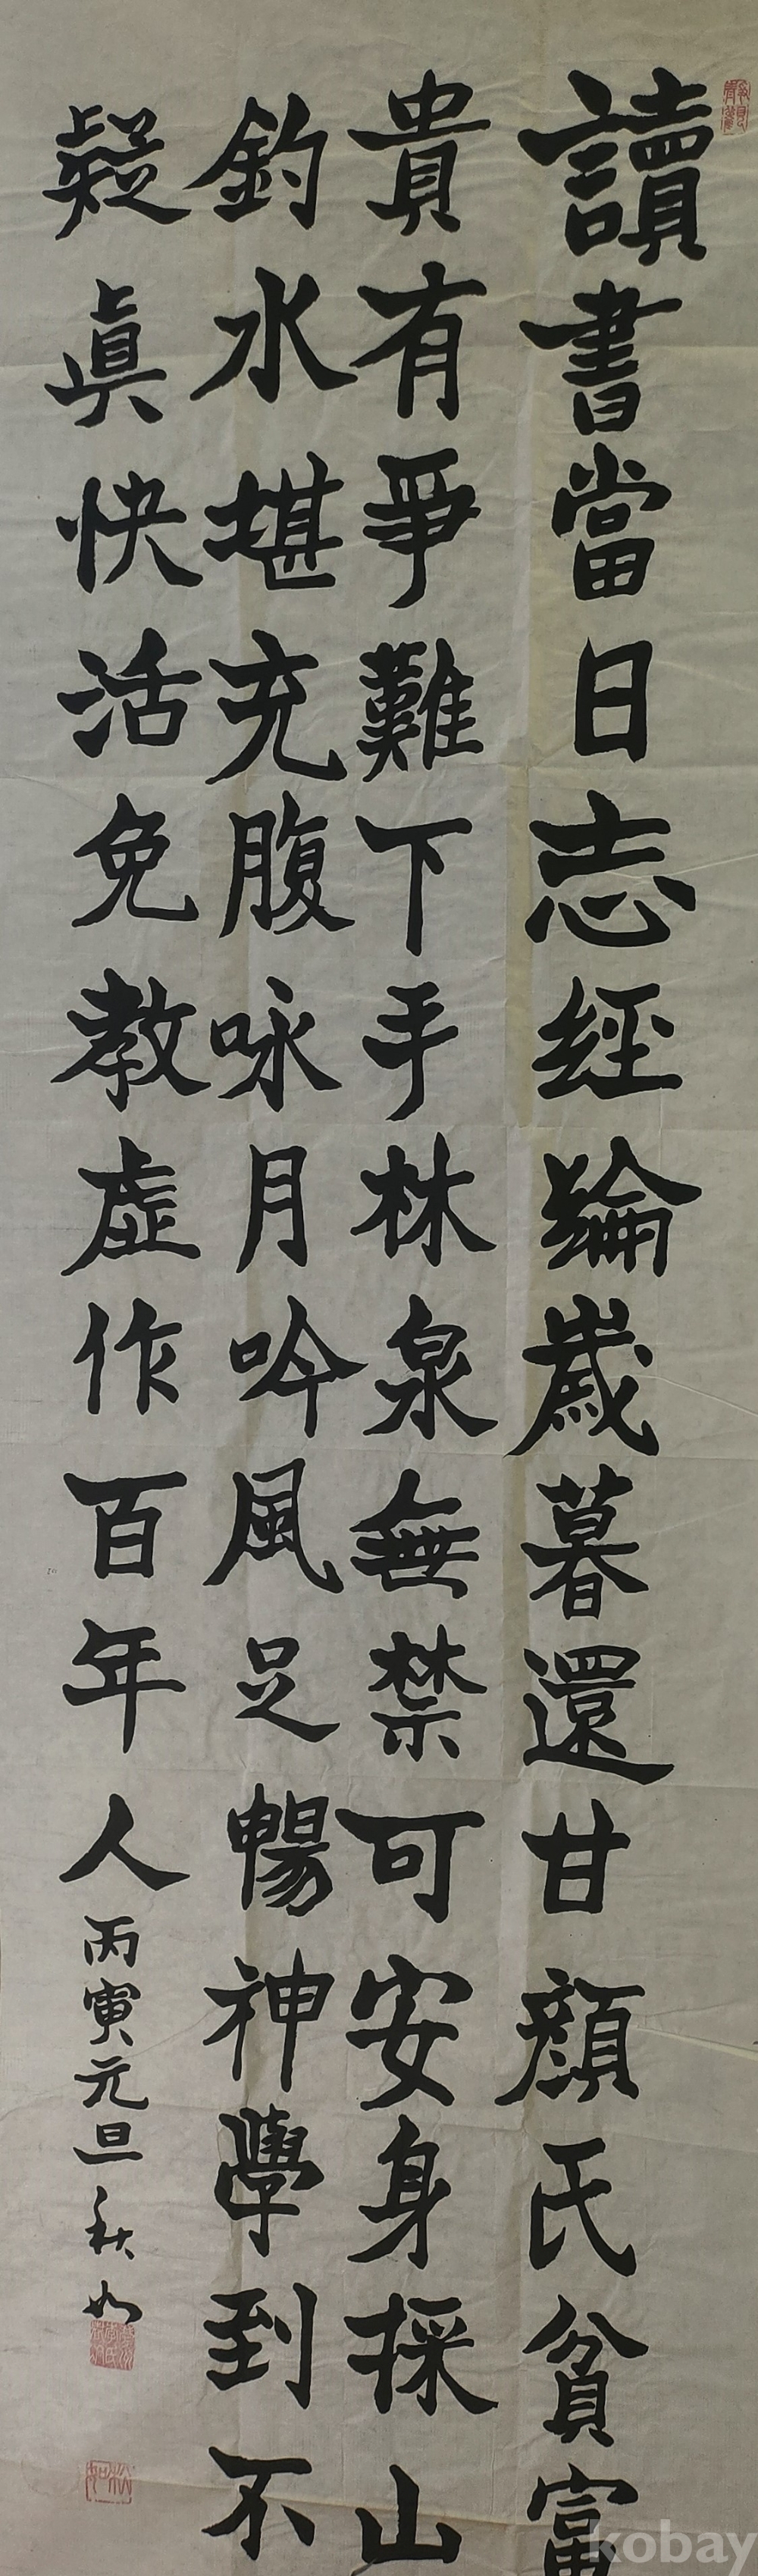 讀書當日志經綸歲暮還甘顔氏貧富
貴有爭難下手林泉無禁可安身採山
釣水堪充腹咏月吟風足暢神學到不
疑眞快活免教虛作百年人
丙寅元旦 秋如
kobay